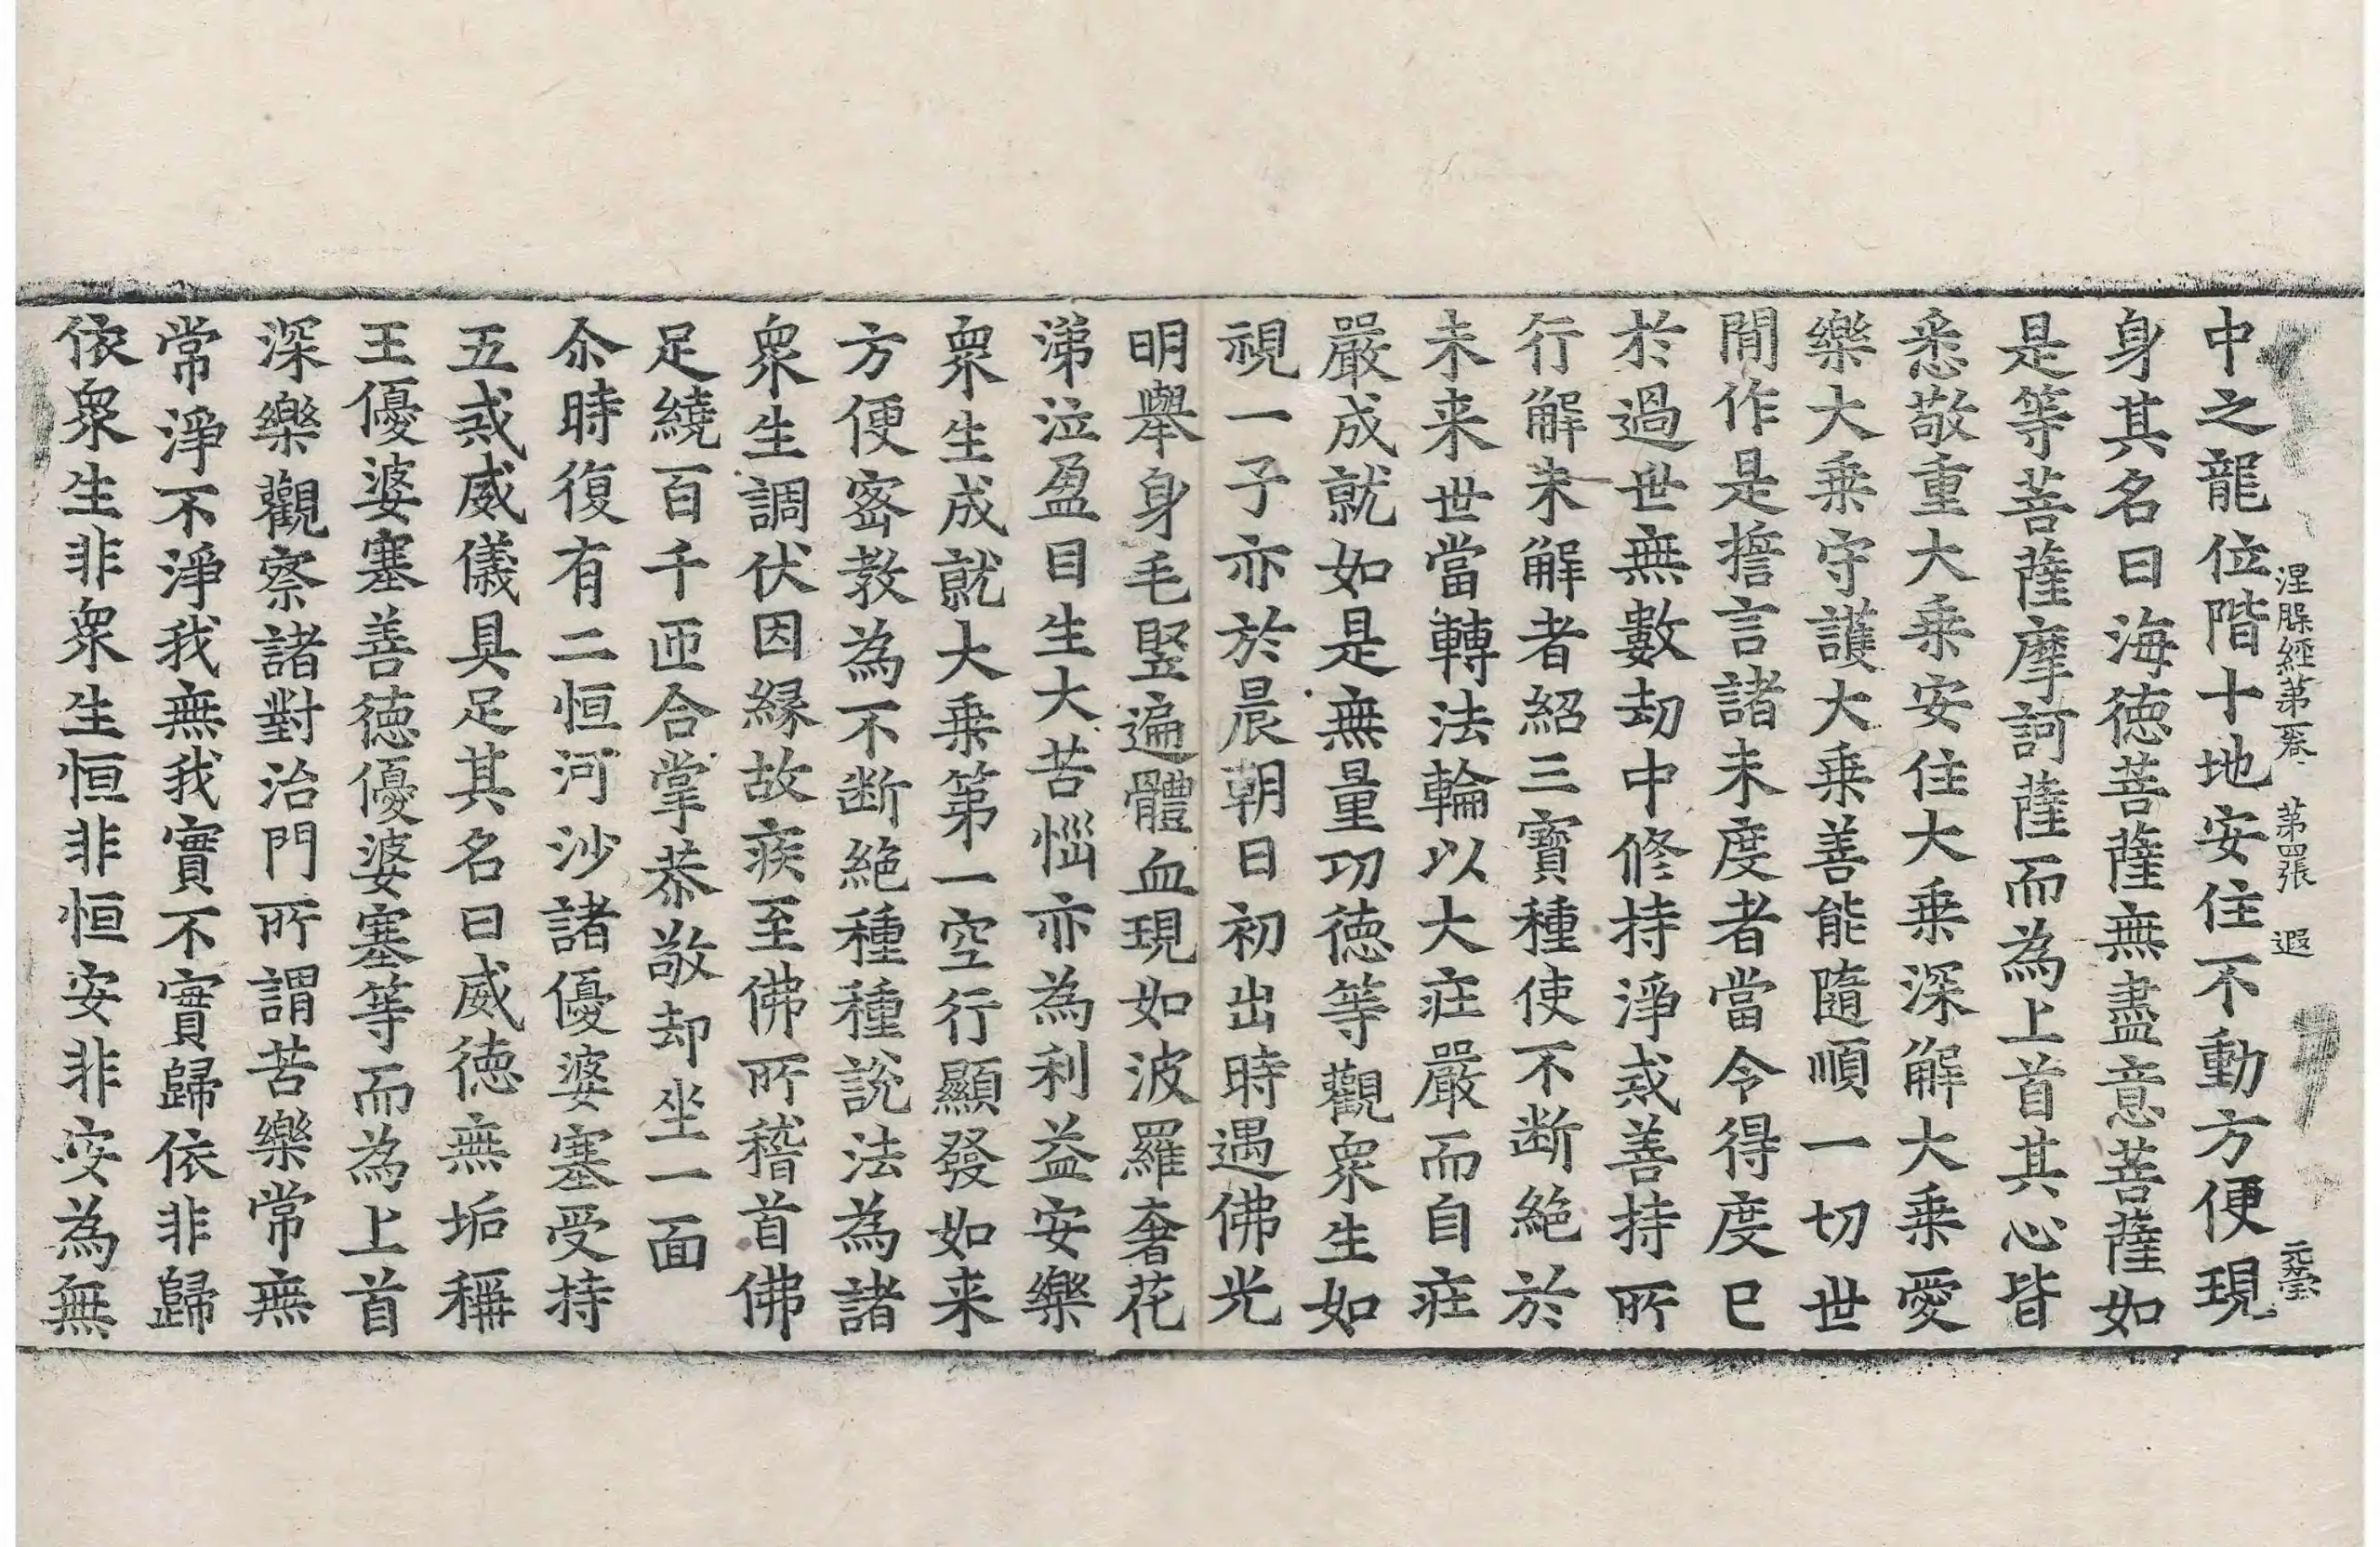 涅槃經第一卷 第四張 遐 元瑩
中之龍位階十地安住不動方便現
身其名曰海徳菩薩無盡意菩薩如
是等菩薩摩訶薩而為上首其心皆
悉敬重大乗安住大乗深解大乗愛
樂大乗守護大乗善能隨順一切世
間作是擔言諸未度者當令得度已
於過世無數劫中修持淨戒善持所
行解未解者紹三寶種使不断絶於
未来世當轉法輪以大莊嚴而自莊
嚴成就如是無量功徳等觀衆生如
視一子亦於晨朝日初出時遇佛光
明舉身毛竪遍體血現如波羅奢花
涕泣盈目生大苦惱亦為利益安樂
衆生成就大乗第一空行顯發如来
方便宻教為不断絶種種説法為諸
衆生調伏因縁故疾至佛所稽首佛
足繞百千匝合掌恭敬却坐一面
尒時復有二恒河沙諸優婆塞受持
五戒威儀具足其名曰威徳無垢稱
王優婆塞善徳優婆塞等而為上首
深樂觀察諸對治門所謂苦樂常無
常淨不淨我無我實不實歸依非歸
依衆生非衆生恒非恒安非安為無